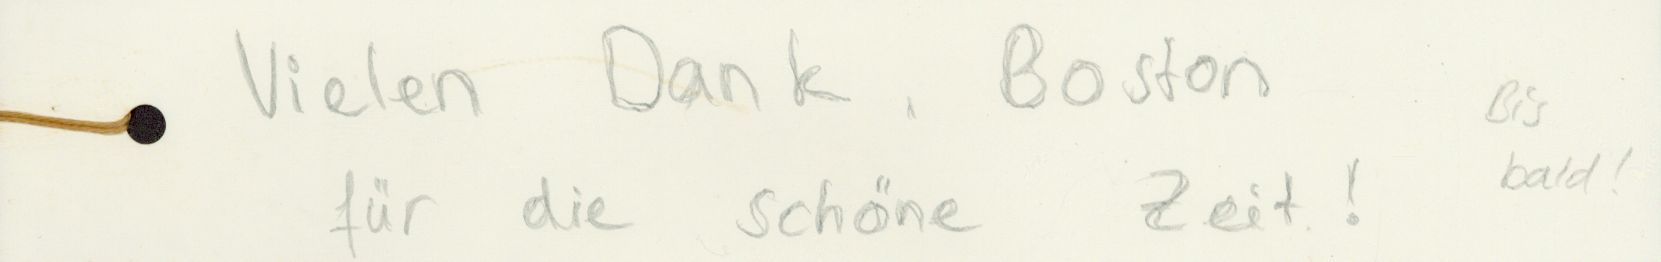 Vielen Dank, Boston
für die schöne Zeit!
Bis
bald!